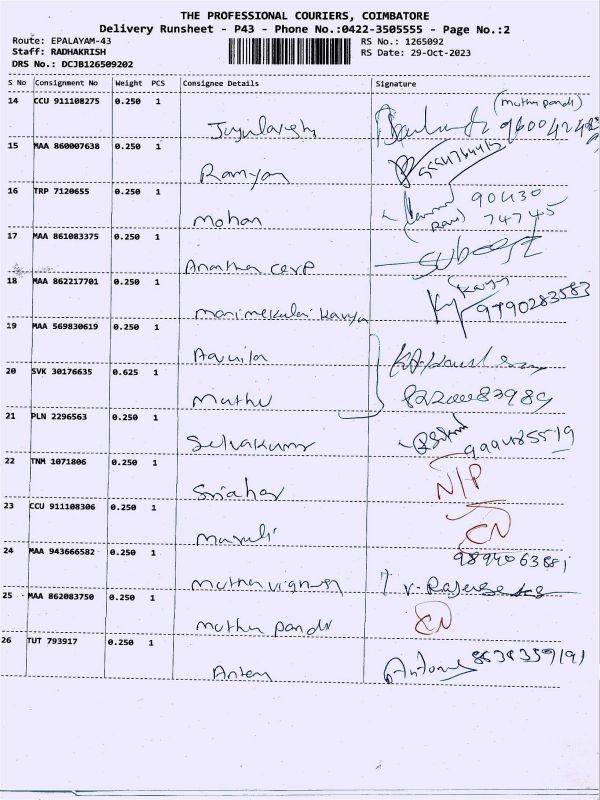 THE PROFESSIONAL COURIERS, COIMBATORE
Delivery Runsheet - P43 - Phone No.:0422-3505555 - Page No.:2
Route: EPALAYAM-43 RS No.: 1265092
Staff: RADHAKRISH RS Date: 29-Oct-2023
DRS No.: DCJB126509202
S No Consignment No Weight PCS Consignee Details Signature
14 CCU 911108275 0.250 1
15 MAA 860007638 0.250 1 Ramya
16 TRP 7120655 0.250 1 Mohan 90430
74745
17 MAA 861083375 0.250 1 Anantha corp
18 MAA 862217701 0.250 1 manimekalai kavya Kavya 9790283583
19 MAA 569830619 0.250 1
20 SVK 30176635 0.625 1 Muthu
21 PLN 2296563 0.250 1 Selvakumar
22 TNM 1071806 0.250 1 Sridhar N/P
23 CCU 911108306 0.250 1 CN
24 MAA 943666582 0.250 1 9894063681
25 MAA 862083750 0.250 1 muthu pandi CN
26 TUT 793917 0.250 1 Antony 8638359191